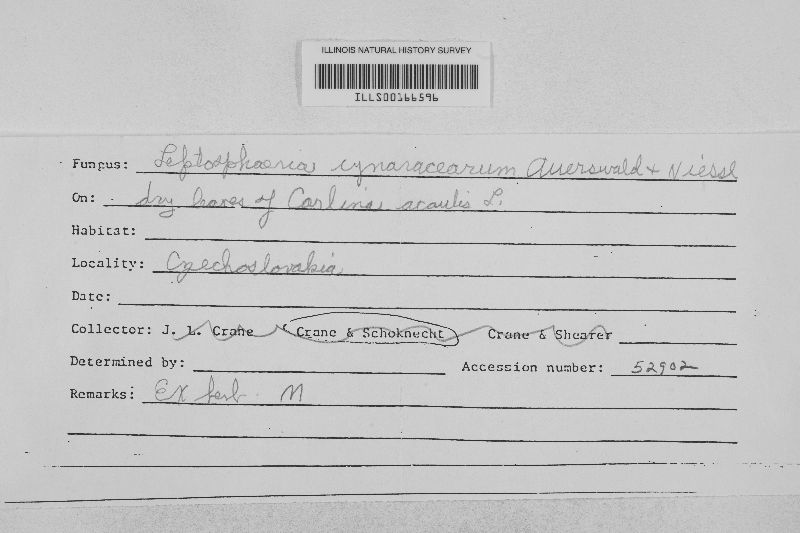 ILLINOIS NATURAL HISTORY SURVEY
ILLS00166596
Fungus: Leptosphaeria cynaracearum Auerswald & Niessl
On: dry leaves of Carlina acaulis L.
Habitat:
Locality: Czechoslovakia
Date:
Collector: J. L. Crane Crane & Schoknecht Crane & Shearer
Determined by: Accession number: 52902
Remarks: Ex herb. M